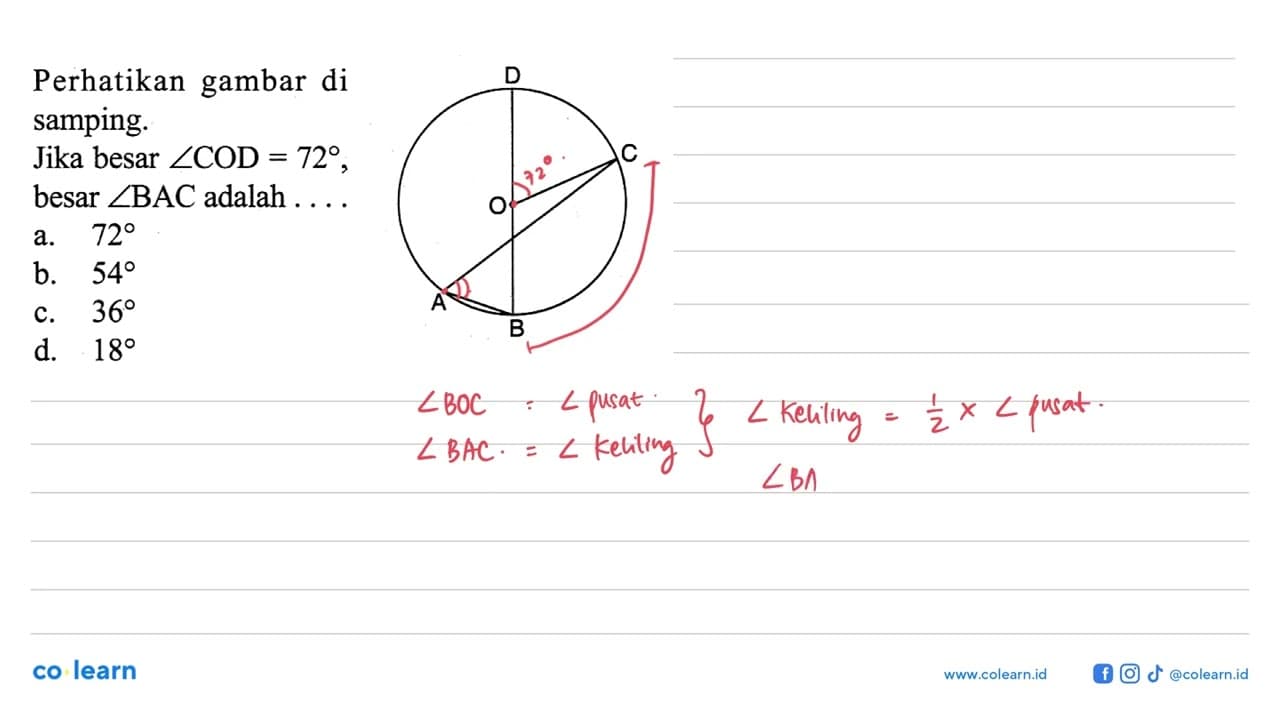 Perhatikan gambar di
samping.
Jika besar ∠COD = 72°,
besar ∠BAC adalah . . . .
a. 72°
b. 54°
c. 36°
d. 18°
D
C
72°
O
A
B
∠BOC = ∠ pusat.
∠BAC. = ∠ keliling
} ∠ keliling = 1/2 × ∠ pusat.
∠BA
co learn
www.colearn.id
@colearn.id